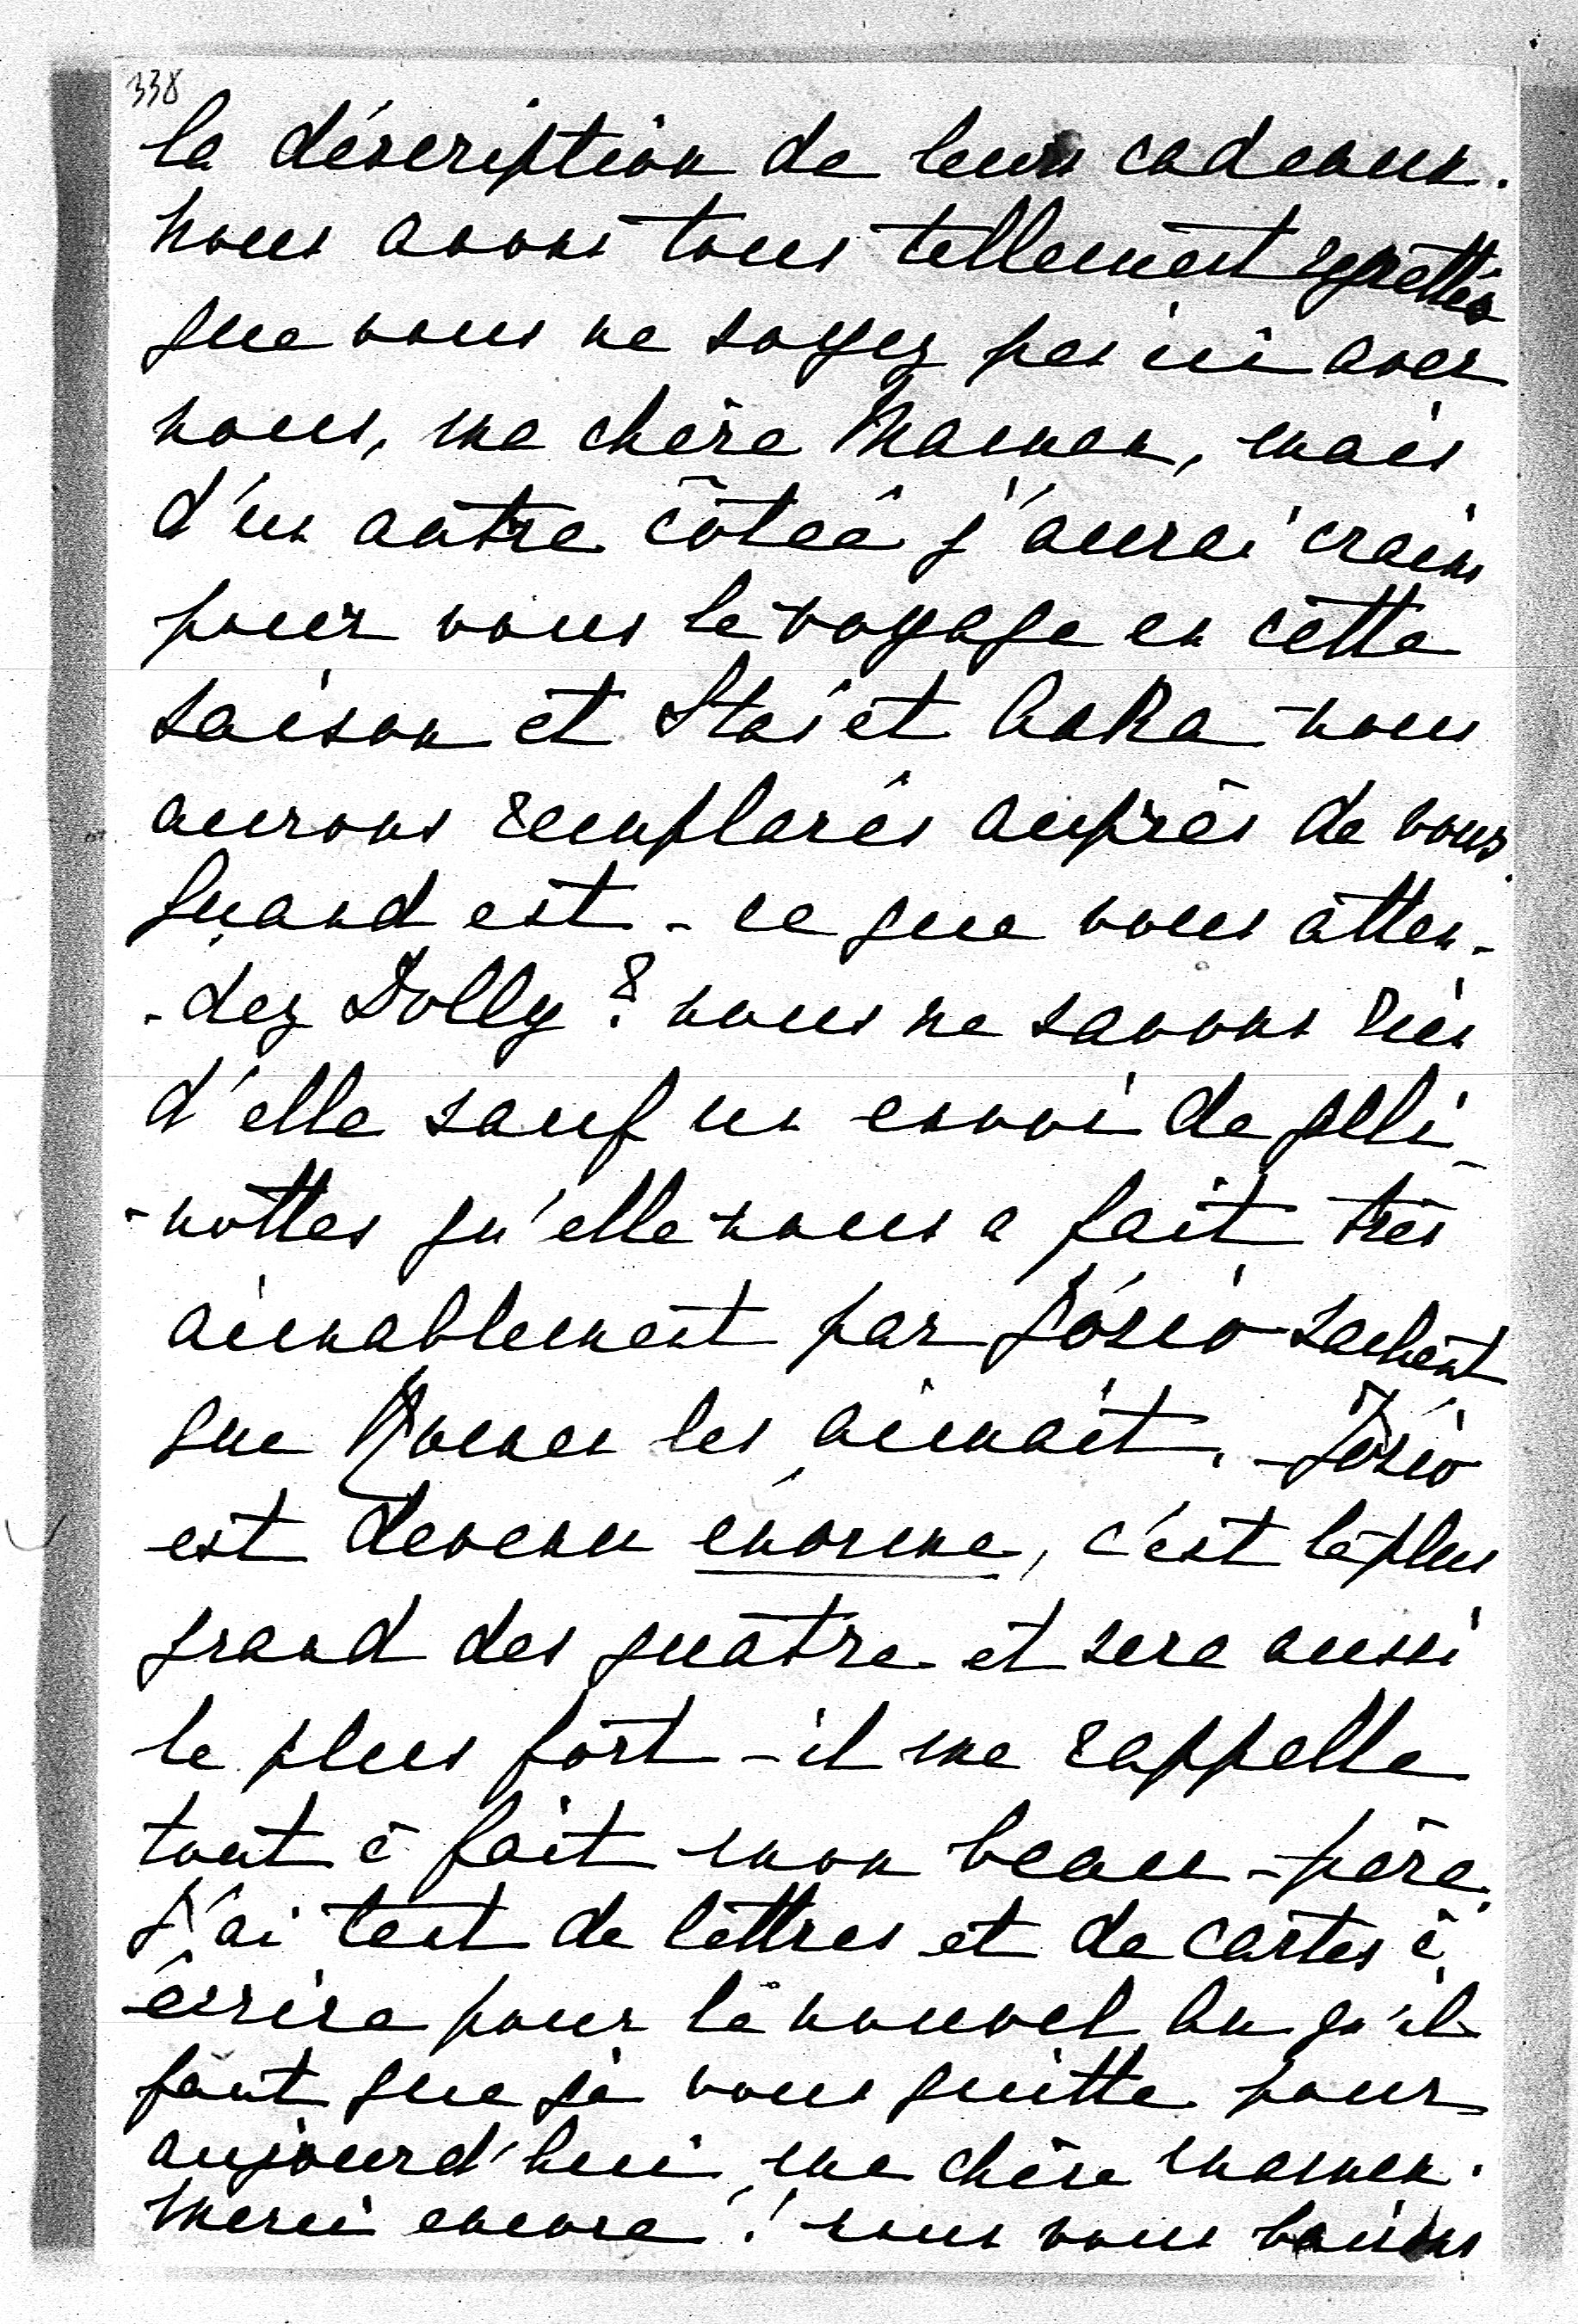 338
la déscription de leurs cadeaux.
nous avons tous tellement regrettés
que vous ne soyez pas ici avec
nous, ma chère Maman, mais
d'un autre côteé j'aurai crains
pour vous le voyage en cette
saison et Stas et
aurons remplacés auprès de vous.
Quand est-ce que vous atten-
-dez Dolly? nous ne savons rien
d'elle sauf un envoi de geli-
-nottes qu'elle nous a fait très
aimablement par Józio sachant
que les aimait. Józio
est devenu énorme, c'est le plus
grand des quatre et sera aussi
le plus fort - il me rappelle
tout à fait mon beau-père.
J'ai tant de lettres et de cartes à
écrire pour le nouvel An qu'il
faut que je vous quitte pour
aujourd'hui ma chère maman.
Merci encore! nous vous baisons